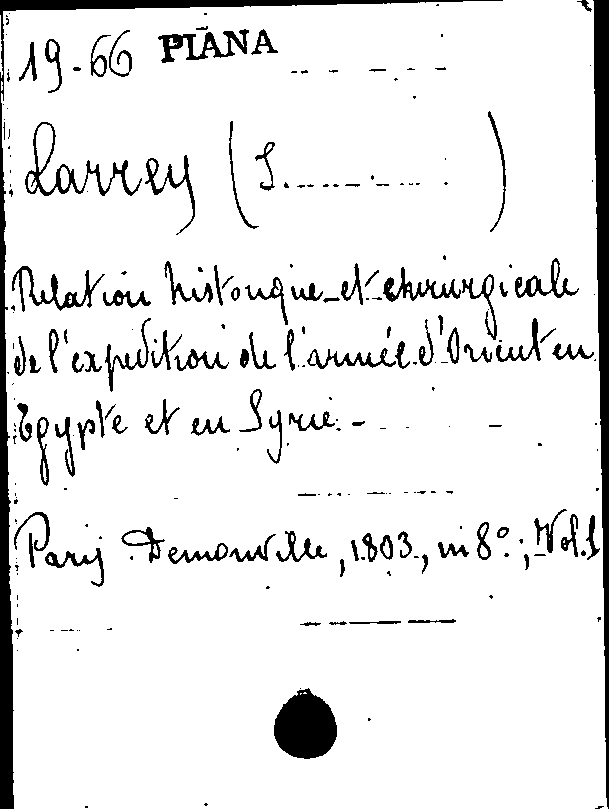 19-66 PIANA
Larrey (S. )
Relation historique et chirurgicale
de l'expedition de l'armée d'Orient en
Egypte et en Syrie -
Paris Demonville, 1803, in 8º; Vol. 1